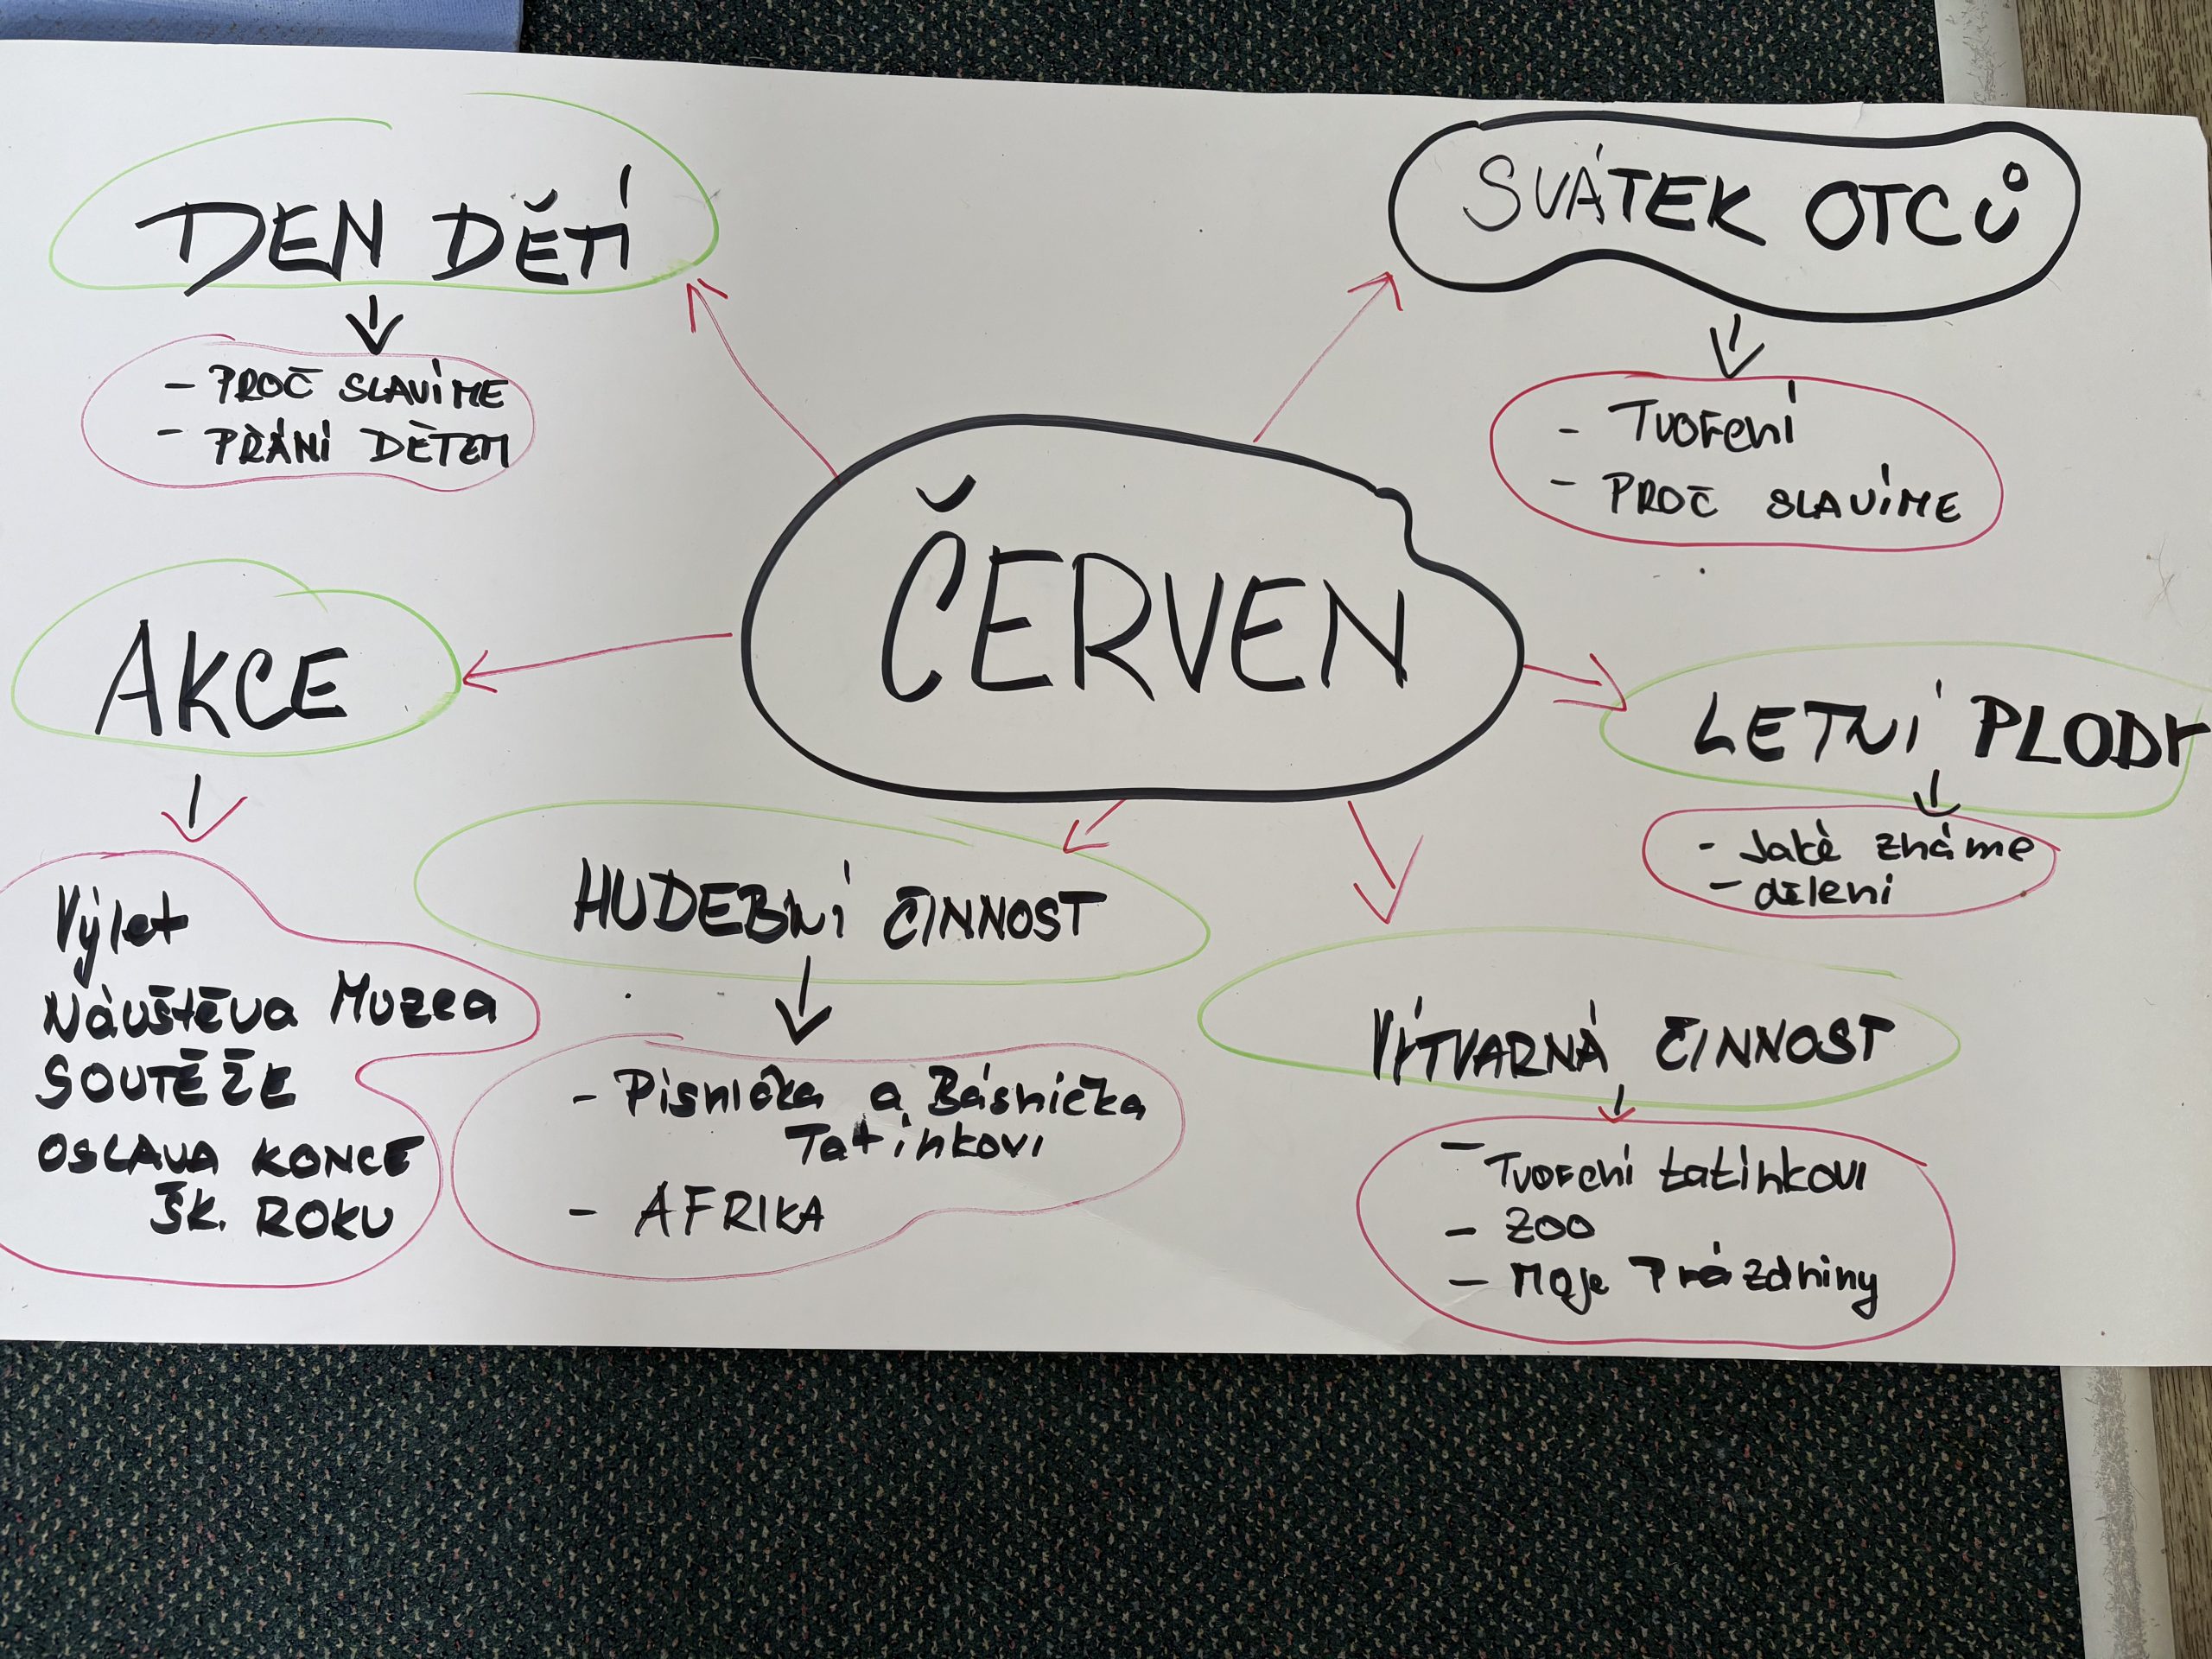 DEN DĚTÍ
- PROČ SLAVÍME
- PŘÁNÍ DĚTEM
SVÁTEK OTCŮ
- Tvoření
- PROČ SLAVÍME
ČERVEN
AKCE
Výlet
Návštěva Muzea
SOUTĚŽE
OSLAVA KONCE
ŠK. ROKU
LETNÍ PLODY
- Jaké známe
- dělení
HUDEBNÍ ČINNOST
- Písnička a Básnička
Tatínkovi
- AFRIKA
VÝTVARNÁ ČINNOST
- Tvoření tatínkovi
- ZOO
- Moje Prázdniny